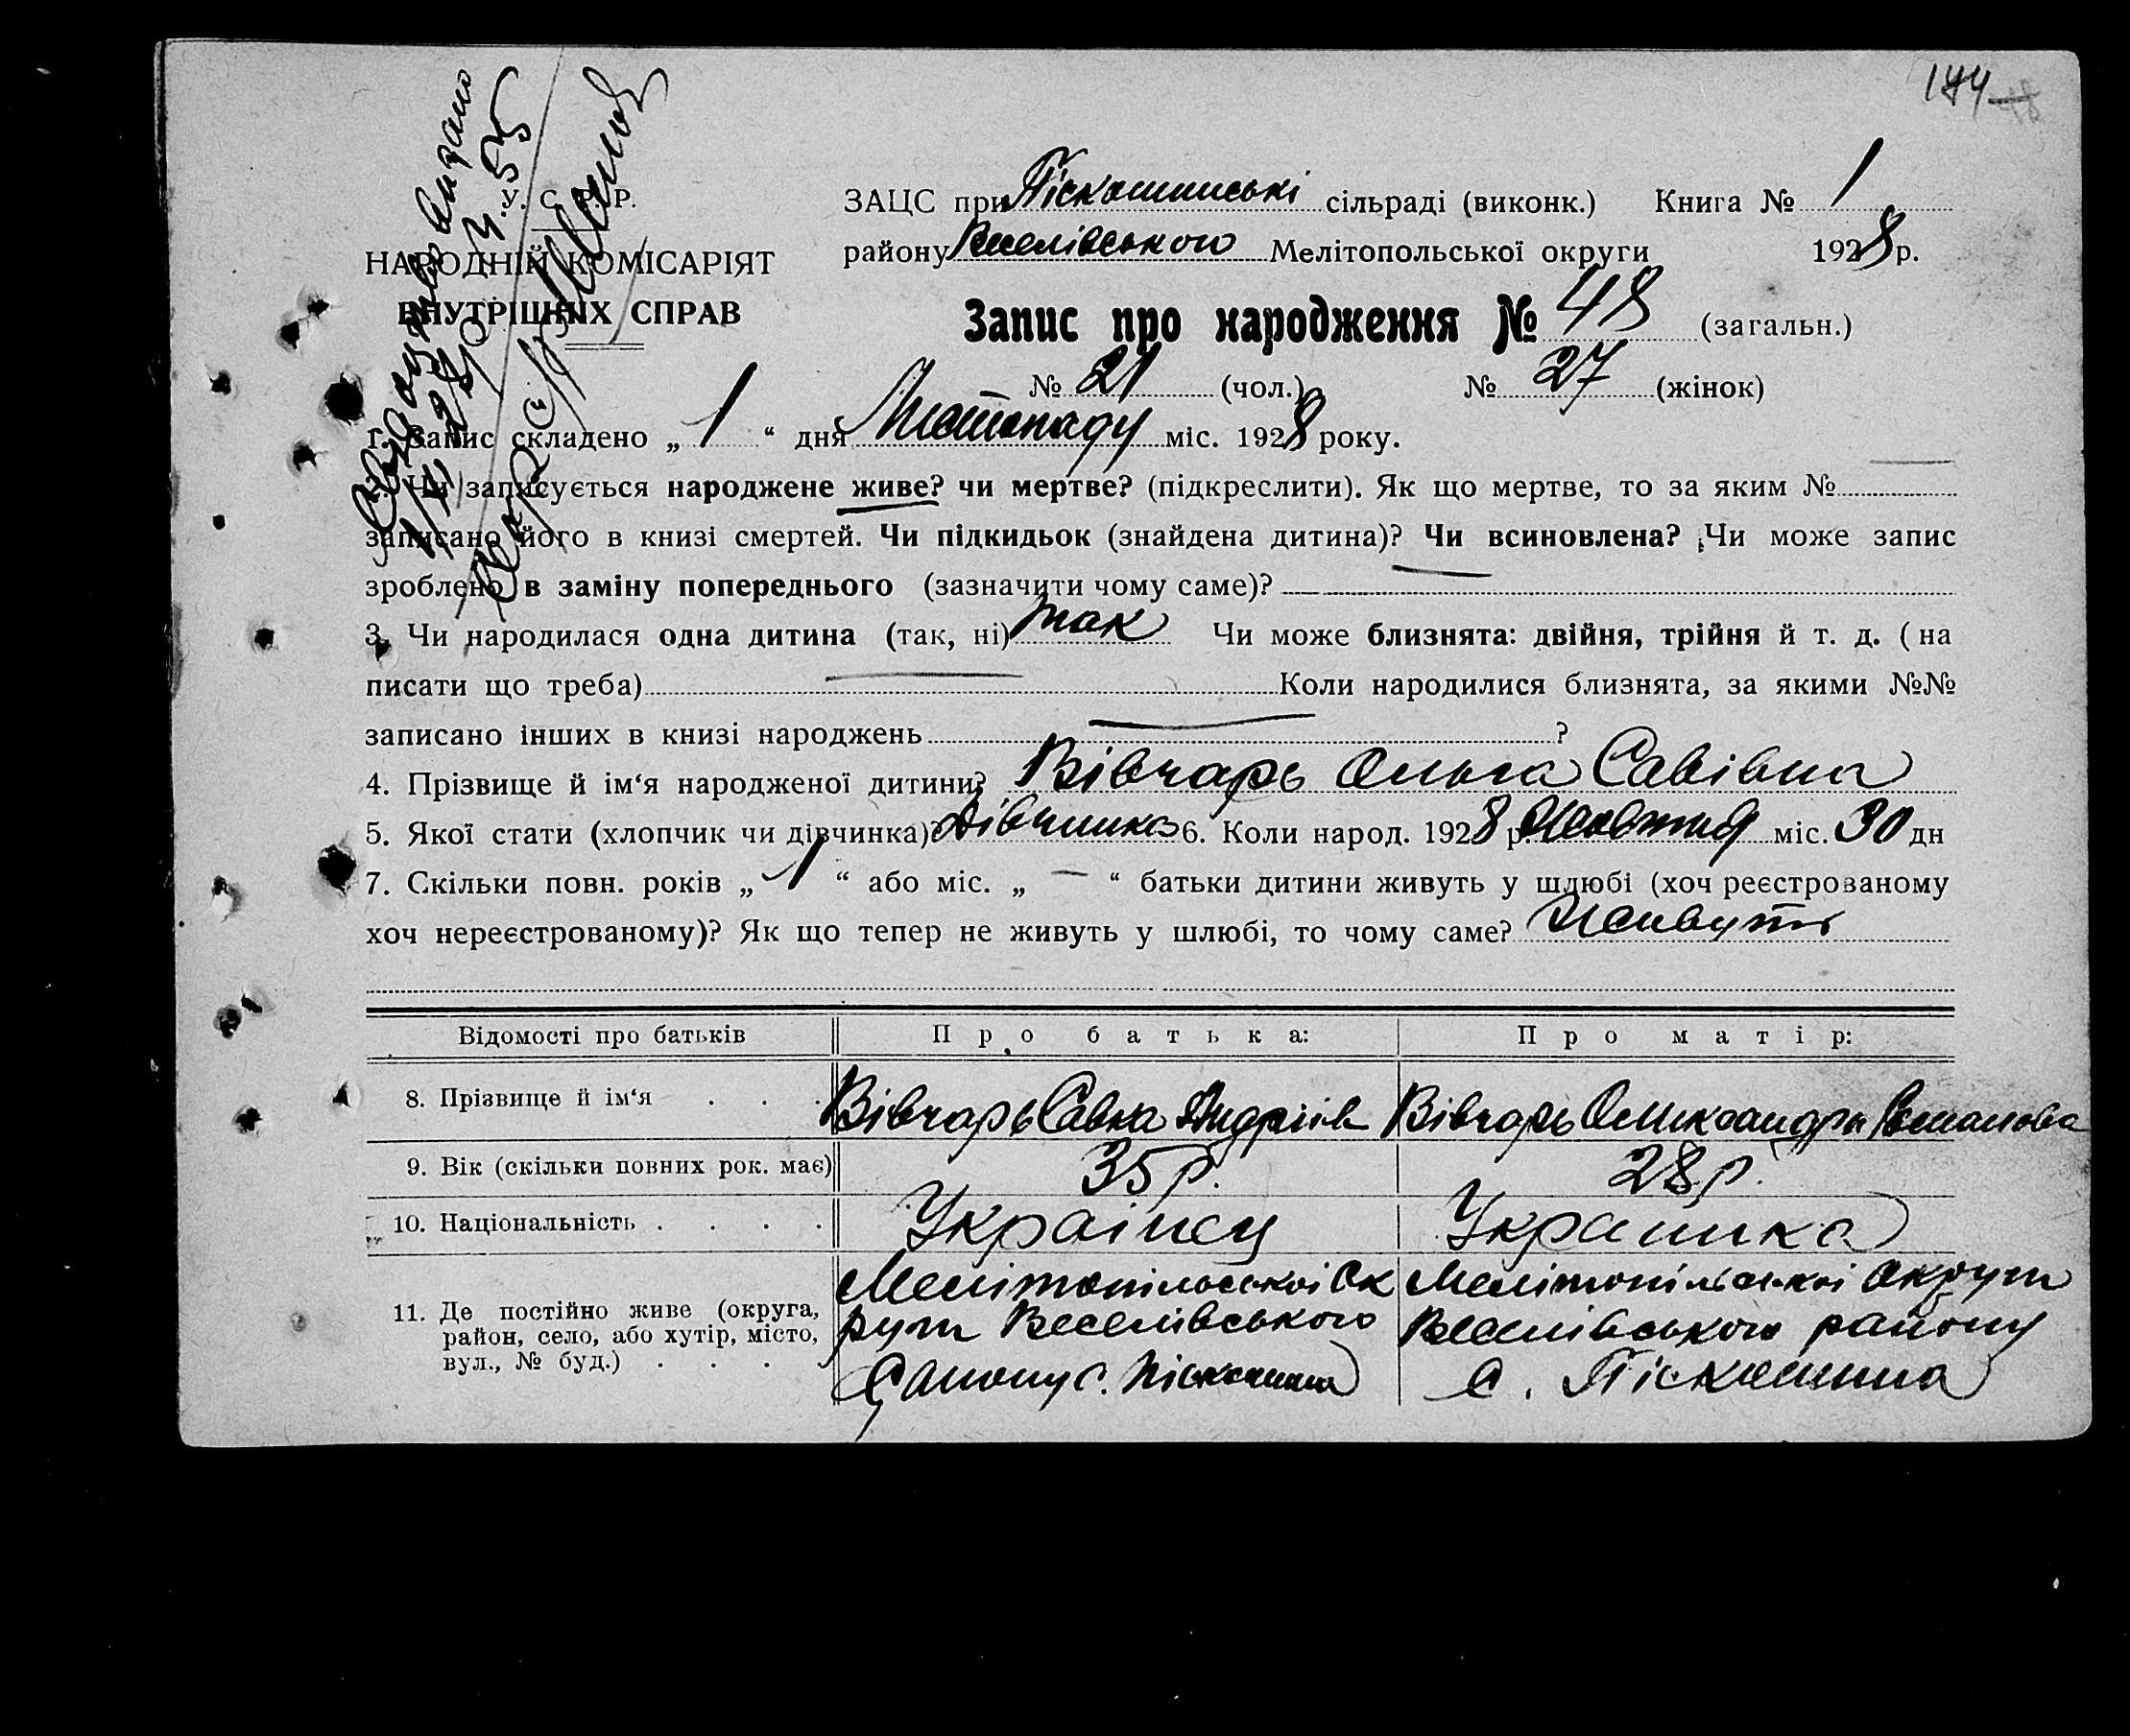 144
У. С. Р. Р.
НАРОДНІЙ КОМІСАРІЯТ
ВНУТРІШНІХ СПРАВ
ЗАЦС при Піскошинські сільраді (виконк.) Книга № 1
району Веселівського Мелітопольської округи 1928 р.
Запис про народження № 48 (загальн.)
№ 21 (чол.) № 27 (жінок)
1. Запис складено „ 1 “ дня Листопаду міс. 1928 року.
2. Чи записується народжене живе? чи мертве? (підкреслити). Як що мертве, то за яким №
записано його в книзі смертей. Чи підкидьок (знайдена дитина)? Чи всиновлена? Чи може запис
зроблено в заміну попереднього (зазначити чому саме)? —
3. Чи народилася одна дитина (так, ні) так Чи може близнята: двійня, трійня й т. д. ( на
писати що треба) — Коли народилися близнята, за якими №№
записано інших в книзі народжень — ?
4. Прізвище й ім‘я народженої дитини? Вівчарь Ольга Савівна
5. Якої стати (хлопчик чи дівчинка)? дівчинка 6. Коли народ. 1928 р. Жовтня міс. 30 дн
7. Скільки повн. років „ 1 “ або міс. „ — “ батьки дитини живуть у шлюбі (хоч реєстрованому
хоч нереєстрованому)? Як що тепер не живуть у шлюбі, то чому саме? Живуть
Відомості про батьків Про батька: Про матір:
8. Прізвище й ім‘я . . . Вівчарь Савка Андріїв Вівчарь Олександра
9. Вік (скільки повних рок. має) 35 р. 28 р.
10. Національність . . . . Українец Українка
11. Де постійно живе (округа, район, село, або хутір, місто, вул., № буд.) . . . .
Мелітопільської Ок
руги Веселівського
району с. Піскошина
Мелітопільської округи
Веселівського району
с. Піскошина